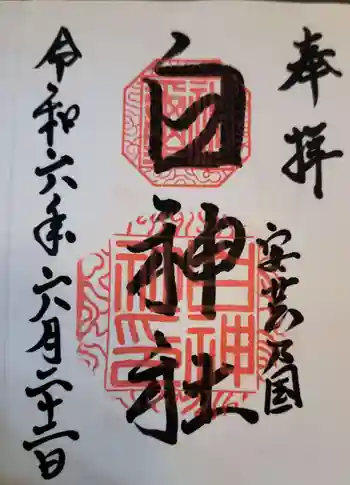 奉拝
安芸乃国
白神社
白神
社印
令和六年六月二十二日